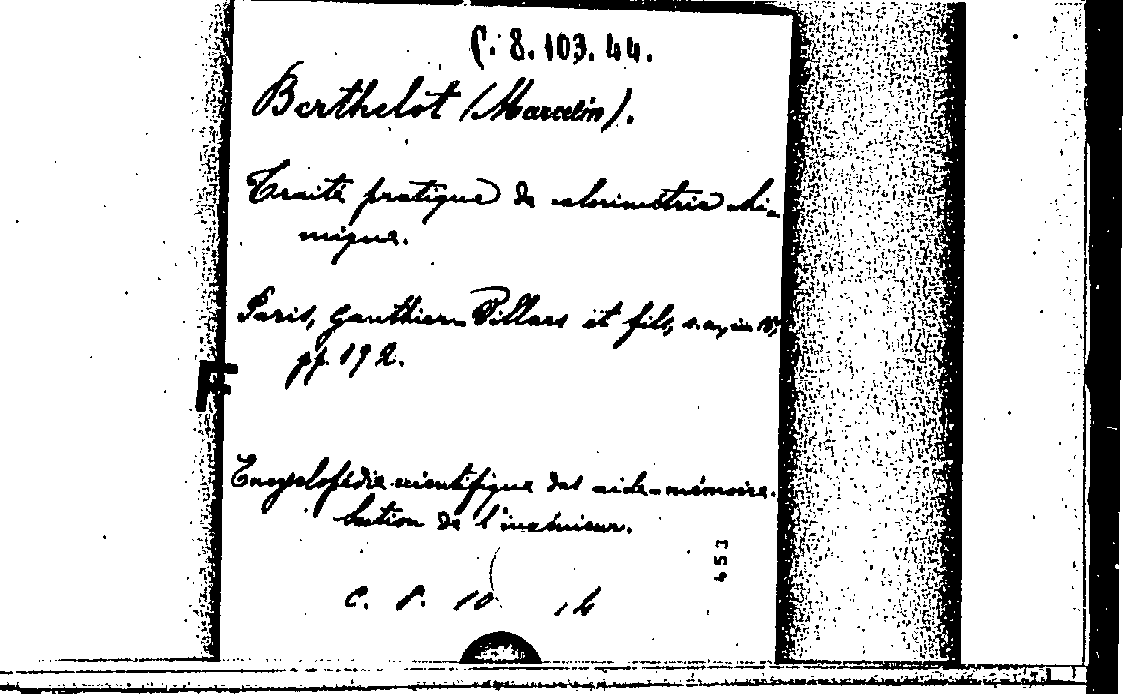 C. 8. 103. 44.
Berthelot (Marcelin).
Traité pratique de calorimétrie chi-
mique.
Paris, Gauthier-Villars et fils, s. a., in 12,
pp. 192.
F
Encyclopédie scientifique des aide-mémoire.
Section de l'ingénieur.
453
C. 8. 10